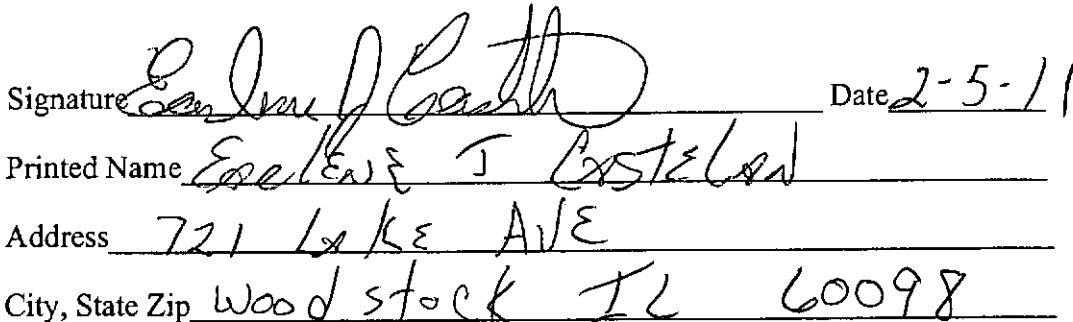 Signature Date 2-5-11
Printed Name Earlene J Castelan
Address 721 Lake AVE
City, State Zip Woodstock IL 60098